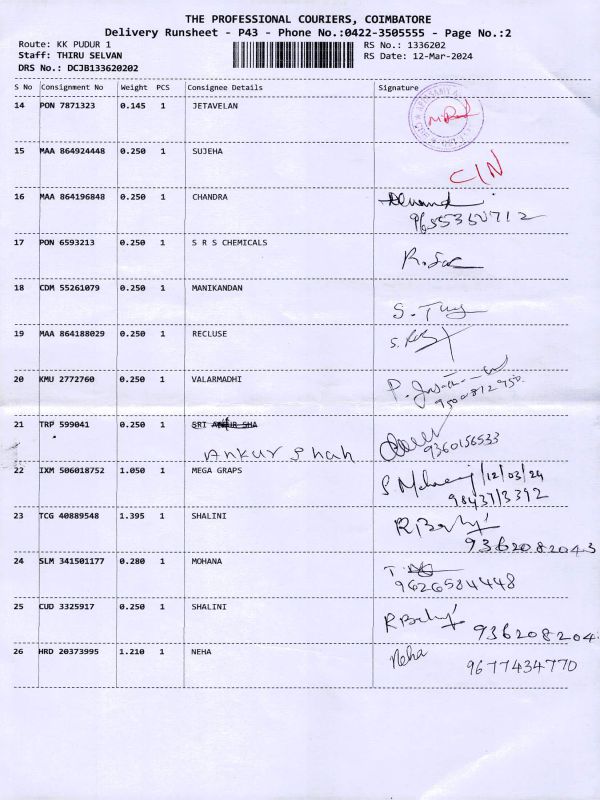 THE PROFESSIONAL COURIERS, COIMBATORE
Delivery Runsheet - P43 - Phone No.:0422-3505555 - Page No.:2
Route: KK PUDUR 1 RS No.: 1336202
Staff: THIRU SELVAN RS Date: 12-Mar-2024
DRS No.: DCJB133620202
S No Consignment No Weight PCS Consignee Details Signature
14 PON 7871323 0.145 1 JETAVELAN
15 MAA 864924448 0.250 1 SUJEHA
C/N
16 MAA 864196848 0.250 1 CHANDRA
17 PON 6593213 0.250 1 S R S CHEMICALS
18 CDM 55261079 0.250 1 MANIKANDAN
19 MAA 864188029 0.250 1 RECLUSE
20 KMU 2772760 0.250 1 VALARMADHI
21 TRP 599041 0.250 1 SRI SHA
Ankur Shah 9360156533
22 IXM 506018752 1.050 1 MEGA GRAPS /12/03/24
9843713392
23 TCG 40889548 1.395 1 SHALINI
9362082043
24 SLM 341501177 0.280 1 MOHANA
9626584448
25 CUD 3325917 0.250 1 SHALINI
936208204
26 HRD 20373995 1.210 1 NEHA Neha 9677434770